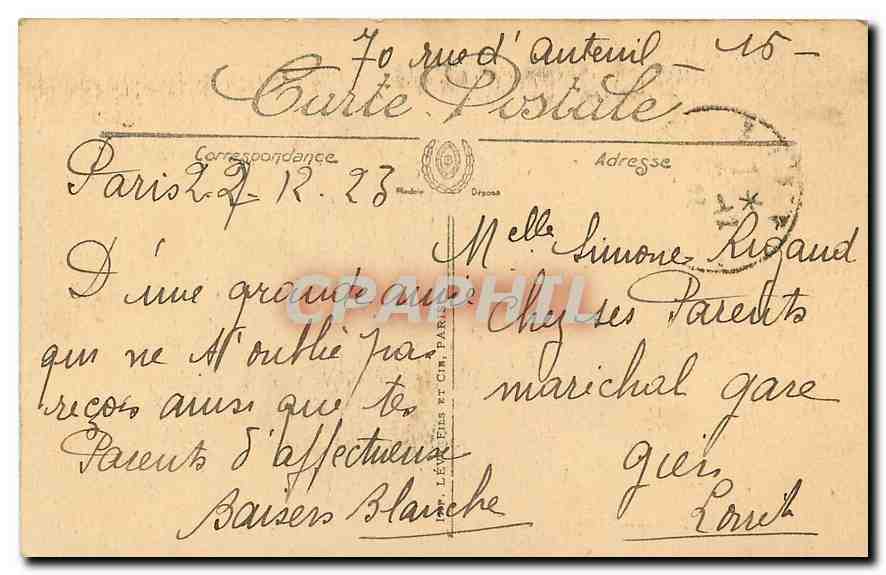 70 rue d'Auteuil - 15 -
Carte Postale
Correspondance
Adresse
Modèle Déposé
Paris 22-12.23
D'une grande amie
qui ne t'oublie pas
reçois ainsi que tes
Parents d'affectueux
Baisers Blanche
IMP. LÉVY FILS ET CIE, PARIS
Melle Simone Rigaud
chez ses Parents
maréchal gare
gien
Loiret
CPAPHIL